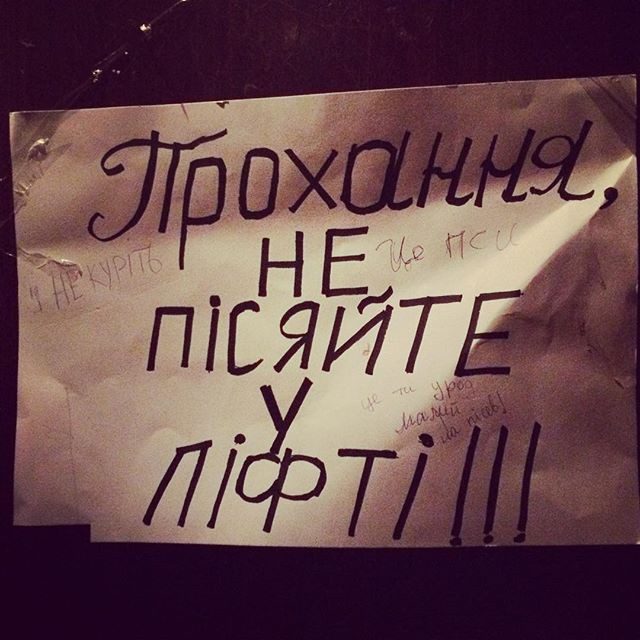 Прохання,
НЕ
Це ПСИ
І НЕ КУРІТЬ
ПІСЯЙТЕ
У
це ти урод
малий
ЛІФТІ!!!